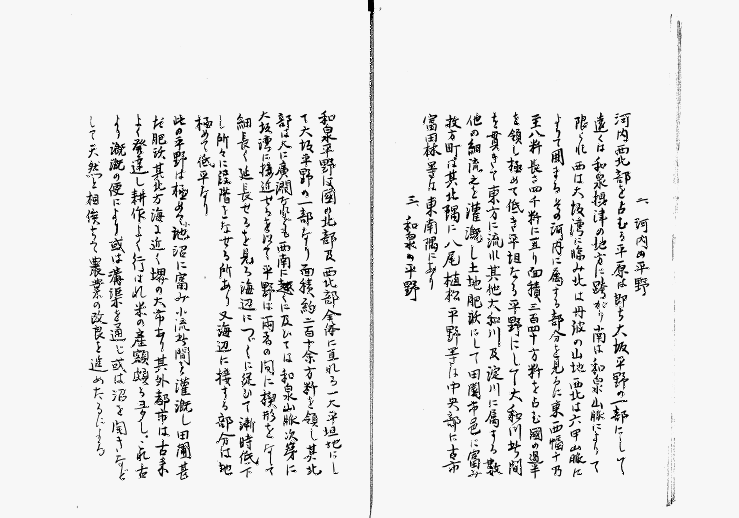 二、河内の平野
河内西北部を占むる平原は即ち大坂平野の一部にして
遠くは和泉摂津の地方に跨がり南は和泉山脈によりて
限られ西は大坂湾に臨み北は丹波の山地西北は六甲山脈に
よりて囲まるその河内に属する部分を見るに東西幅十乃
至八粁長さ四千粁に亘り面積二百四十方粁を占む国の過半
を領し極めて低き平坦なる平野にして大和川其間
を貫きて東方に流れ其他大和川及淀川に属する数
他の細流之を灌漑し土地肥沃にして田園市邑に富み
枚方町は其北隅に八尾植松平野等は中央部に古市
富田林等は東南隅にあり
三、和泉の平野
和泉平野は国の北部及西北部全体に亘れる一大平坦地にし
て大坂平野の一部なり面積約二百十余方粁を領し其北
部は大に廣潤なるも西南に越くに及びては和泉山脈次第に
大坂湾に接近せるを以て平野は両者の間に楔形をなして
細長く延長せるを見る海辺につくに従ひて漸時低下
し所々に段階をなせる所あり又海辺に接する部分は地
極めて低平なり
此の平野は極めて池沼に富み小流其間を灌漑し田圃甚
だ肥沃其北方海に近く堺の大市あり其外都市は古来
よく発達し耕作よく行はれ米の産額頗る多し、これ古
より灌漑の便により或は溝渠を通じ或は沼を開きなど
して天然と相俟ちて農業の改良を進めたるによる